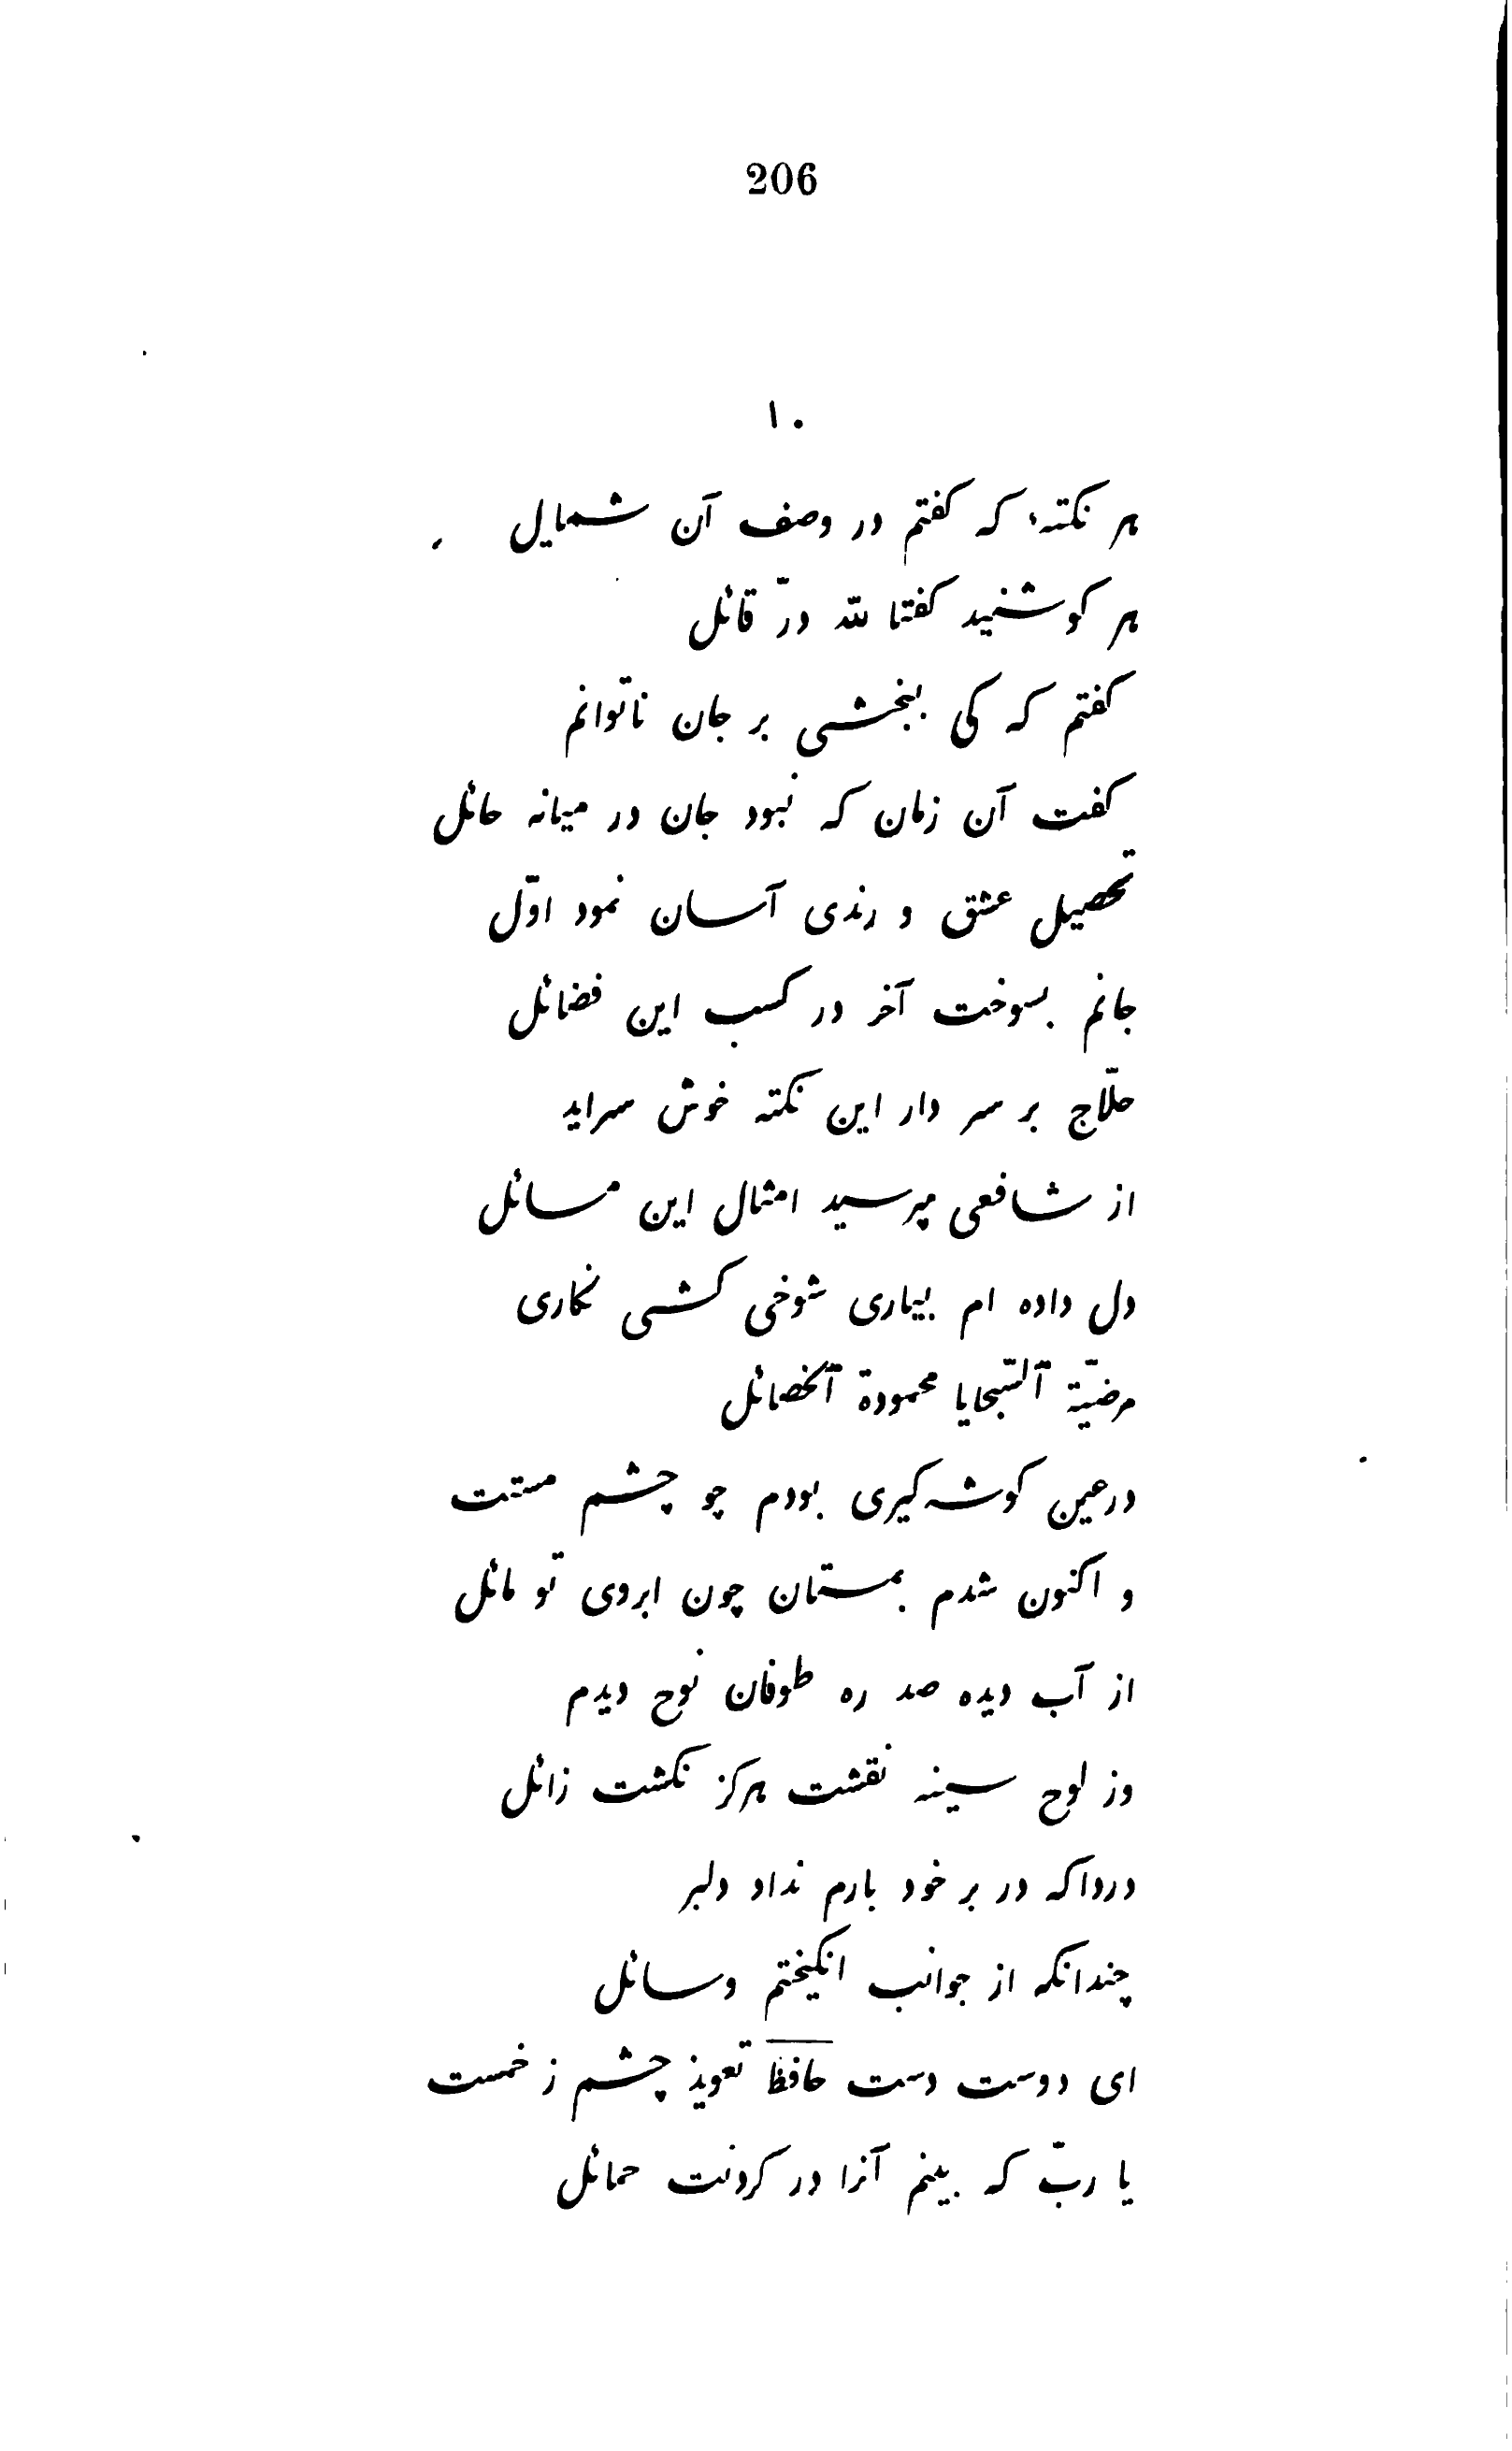 206
۱۰
هر نكتهٔ كه كفتم در وصف آن شمايل
هر كو شنيد كفتا لله درّ قائل
كفتم كه كى ببخشى بر جان ناتوانم
كفت آن زمان كه نبود جان در ميانه حائل
تحصيل عشق و رندى آسان نمود اوّل
جانم بسوخت آخر در كسب اين فضائل
حلّاج بر سر دار اين نكته خوش سرايد
از شافعى مپرسيد امثال اين مسائل
دل داده ام بيارى شوخى كشى نكارى
مرضيّة ٱلسّجايا محمودة ٱلخصائل
درعين كوشه‌كيرى بودم چو چشم مستت
و اكنون شدم بمستان چون ابروى تو مائل
از آب ديده صد ره طوفان نوح ديدم
وز لوح سينه نقشت هركز نكشت زائل
درداكه در بر خود بارم نداد دلبر
چندانكه از جوانب انكيختم وسائل
اى دوست دست حافظ تعويذ چشم زخمست
يا ربّ كه بينم آنرا در كردنت حمائل